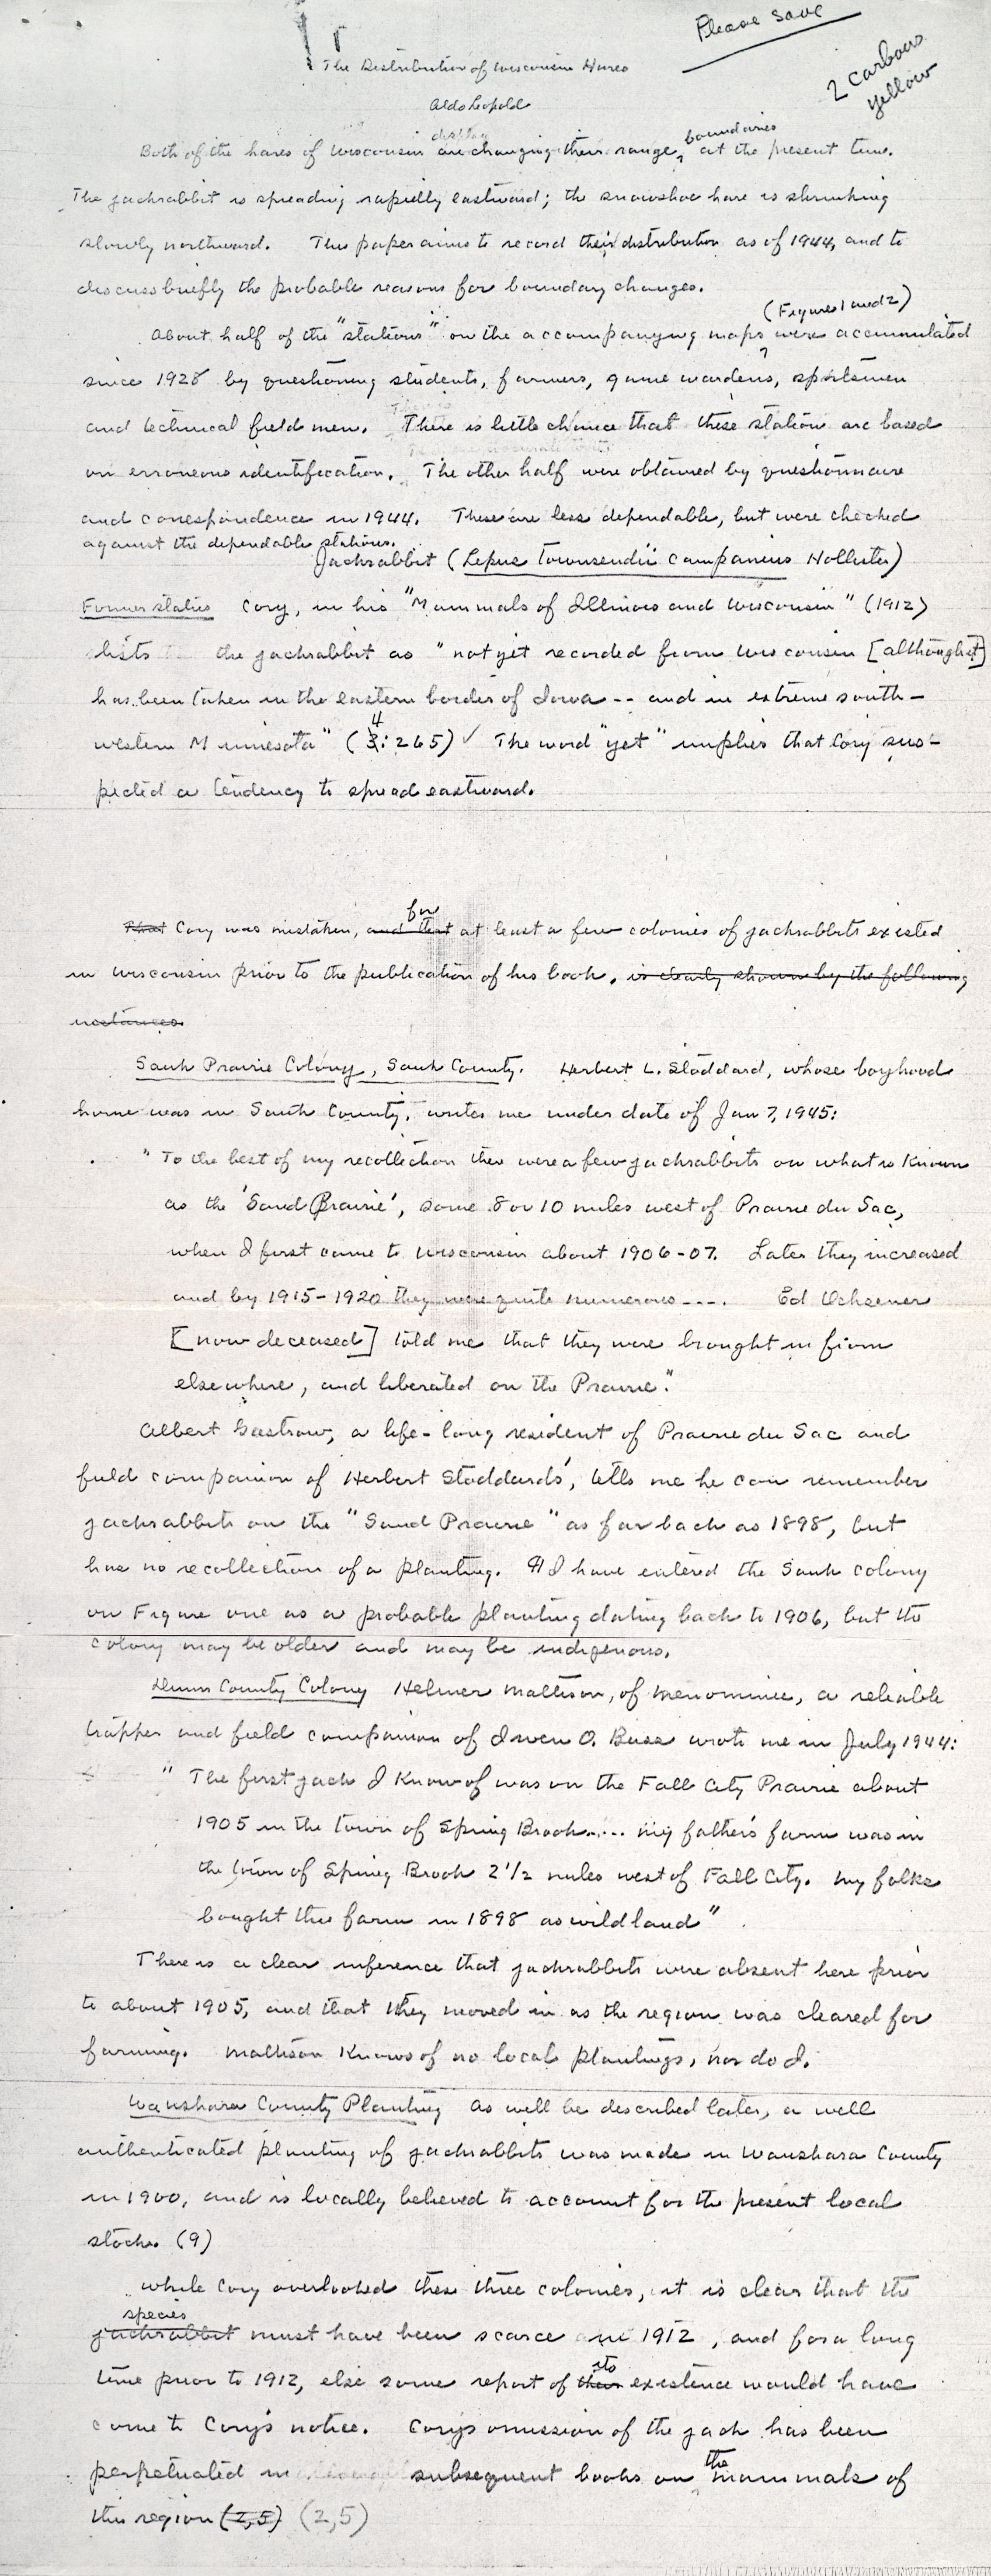 Please save
2 carbons
yellow
The Distribution of Wisconsin Hares
Aldo Leopold
Both of the hares of Wisconsin are changing their range boundaries at the present time.
The jackrabbit is spreading rapidly eastward; the snowshoe hare is shrinking
slowly northward. This paper aims to record their distribution as of 1944, and to
discuss briefly the probable reasons for boundary changes.
About half of the "stations" on the accompanying maps (Figures 1 and 2) were accumulated
since 1928 by questioning students, farmers, game wardens, sportsmen
and technical field men. There is little chance that these station are based
on erroneous identification. The other half were obtained by questionnaire
and correspondence in 1944. These are less dependable, but were checked
against the dependable stations.
Jackrabbit (Lepus townsendii campanius Hollister)
Former status Cory, in his "Mammals of Illinois and Wisconsin" (1912)
lists the jackrabbit as "not yet recorded from Wisconsin [although it]
has been taken in the eastern border of Iowa -- and in extreme south-
western Minnesota" (4:265) The word "yet" implies that Cory sus-
pected a tendency to spread eastward.
That Cory was mistaken, and that for at least a few colonies of jackrabbits existed
in Wisconsin prior to the publication of his book. is clearly shown by the following
instances.
Sauk Prairie Colony, Sauk County. Herbert L. Stoddard, whose boyhood
home was in Sauk County, writes me under date of Jan 7, 1945:
"To the best of my recollection there were a few jackrabbits on what is known
as the 'Sand Prairie', some 8 or 10 miles west of Prairie du Sac,
when I first came to Wisconsin about 1906-07. Later they increased
and by 1915-1920 they were quite numerous ---. Ed Ochsener
[now deceased] told me that they were brought in from
elsewhere, and liberated on the Prairie."
Albert Gastrow, a life-long resident of Prairie du Sac and
field companion of Herbert Stoddards', tells me he can remember
jackrabbits on the "Sand Prairie" as far back as 1898, but
has no recollection of a planting. ¶ I have entered the Sauk colony
on Figure one as a probable planting dating back to 1906, but the
colony may be older and may be indigenous.
Dunn County Colony Helmer Mattison, of Menominie, a reliable
trapper and field companion of Irven O. Buss wrote me in July 1944:
"The first jack I know of was on the Fall City Prairie about
1905 in the town of Spring Brook.... My father's farm was in
the town of Spring Brook 2 1/2 miles west of Fall City. My folks
bought this farm in 1898 as wild land"
There is a clear inference that jackrabbits were absent here prior
to about 1905, and that they moved in as the region was cleared for
farming. Mattison knows of no local plantings, nor do I.
Waushara County Planting As will be described later, a well
authenticated planting of jackrabbits was made in Waushara County
in 1900, and is locally believed to account for the present local
stock. (9)
While Cory overlooked these three colonies, it is clear that the
jackrabbit species must have been scarce in 1912, and for a long
time prior to 1912, else some report of their its existence would have
come to Cory's notice. Cory's omission of the jack has been
perpetuated in subsequent books on the mammals of
this region (2,5) (2,5)